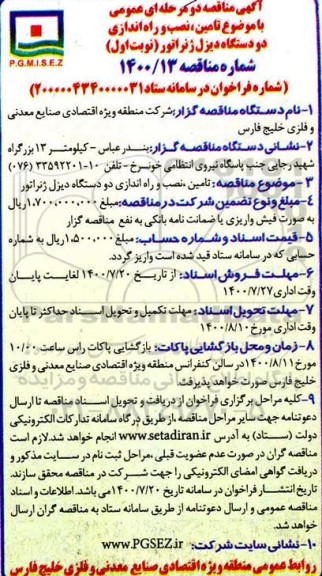 آگهی مناقصه دو مرحله ای عمومی
با موضوع تامین، نصب و راه اندازی
دو دستگاه دیزل ژنراتور (نوبت اول)
P.G.M.I.S.E.Z
شماره مناقصه ۱۴۰۰/۱۳
(شماره فراخوان در سامانه ستاد ۲۰۰۰۰۰۴۳۴۰۰۰۰۰۳۱)
۱-نام دستگاه مناقصه گزار: شرکت منطقه ویژه اقتصادی صنایع معدنی
و فلزی خلیج فارس
۲-نشانی دستگاه مناقصه گزار: بندر عباس - کیلومتر ۱۳ بزرگراه
شهید رجایی جنب پاسگاه نیروی انتظامی خونسرخ - تلفن ۱۰-۳۳۵۹۲۲۰۱ (۰۷۶)
۳- موضوع مناقصه: تامین، نصب و راه اندازی دو دستگاه دیزل ژنراتور
۴-مبلغ و نوع تضمین شرکت در مناقصه: مبلغ ۱.۷۰۰.۰۰۰.۰۰۰ ریال
به صورت فیش واریزی یا ضمانت نامه بانکی به نفع مناقصه گزار
۵-قیمت اسناد و شماره حساب: مبلغ ۱.۵۰۰.۰۰۰ ریال به شماره
حسابی که در سامانه ستاد قید شده است واریز گردد.
۶-مهلت فروش اسناد: از تاریخ ۱۴۰۰/۷/۲۰ لغایت پایان
وقت اداری ۱۴۰۰/۷/۲۷
۷-مهلت تحویل اسناد: مهلت تکمیل و تحویل اسناد حداکثر تا پایان
وقت اداری مورخ ۱۴۰۰/۸/۱۰
۸-زمان و محل بازگشایی پاکات: بازگشایی پاکات راس ساعت ۱۰/۰۰
مورخ ۱۴۰۰/۸/۱۱ در سالن کنفرانس منطقه ویژه اقتصادی صنایع معدنی و فلزی
خلیج فارس صورت خواهد پذیرفت
۹-کلیه مراحل برگزاری فراخوان از دریافت و تحویل اسناد مناقصه تا ارسال
دعوتنامه جهت سایر مراحل مناقصه، از طریق درگاه سامانه تدارکات الکترونیکی
دولت (ستاد) به آدرس www.setadiran.ir انجام خواهد شد. لازم است
مناقصه گران در صورت عدم عضویت قبلی، مراحل ثبت نام در سایت مذکور و
دریافت گواهی امضای الکترونیکی را جهت شرکت در مناقصه محقق سازند.
تاریخ انتشار فراخوان در سامانه تاریخ ۱۴۰۰/۷/۲۰ می باشد. اطلاعات و اسناد
مناقصه عمومی و ارسال دعوتنامه از طریق سامانه ستاد به مناقصه گران ارسال
خواهد شد.
۱۰-نشانی سایت شرکت: www.PGSEZ.ir
روابط عمومی منطقه ویژه اقتصادی صنایع معدنی و فلزی خلیج فارس